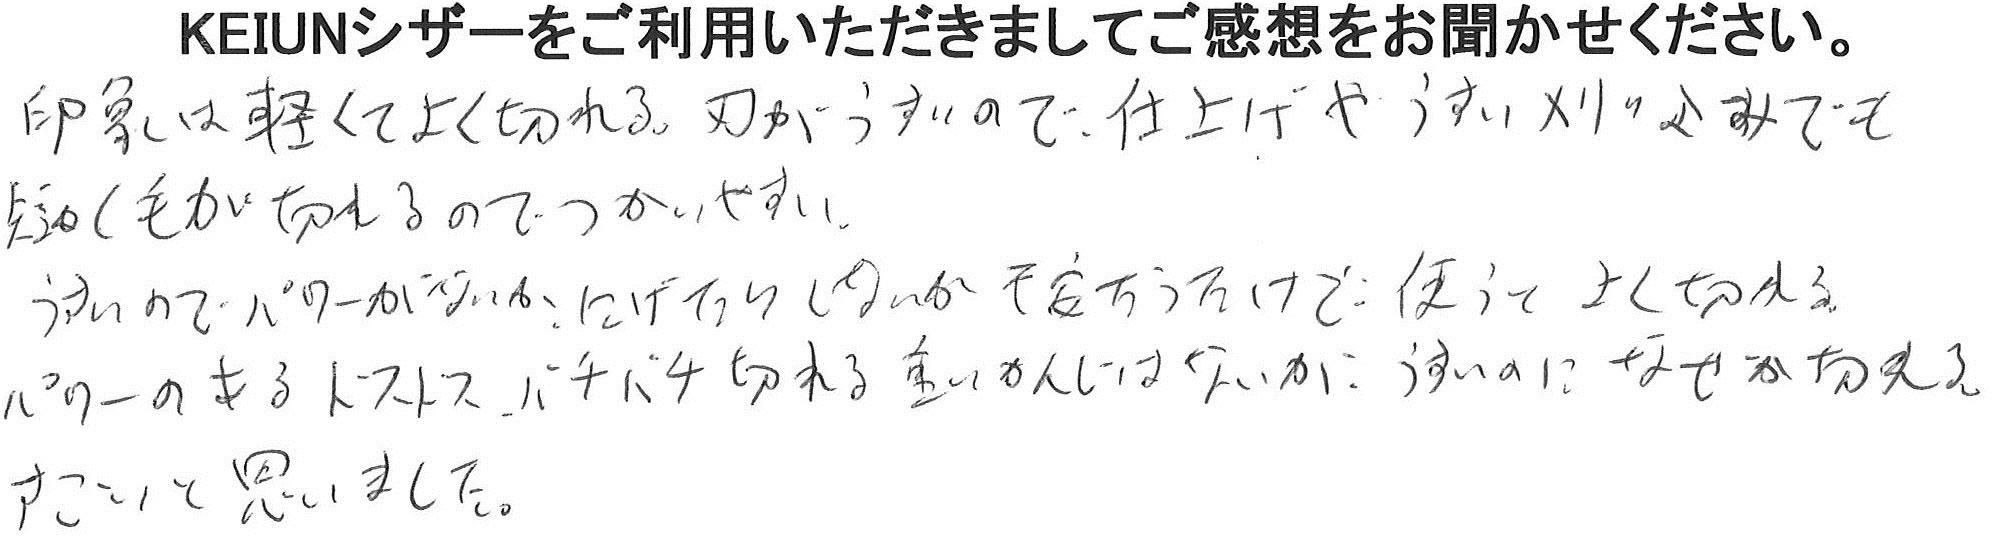 KEIUNシザーをご利用いただきましてご感想をお聞かせください。
印象は軽くてよく切れる。刃がうすいので、仕上げやうすい刈り込みでも
短く毛が切れるのでつかいやすい。
うすいのでパワーがないか、にげたりしないか不安だったけど、使ってよく切れる。
パワーのあるドスドス、バチバチ切れる重いかんじはないがうすいのになぜか切れる。
すごいと思いました。